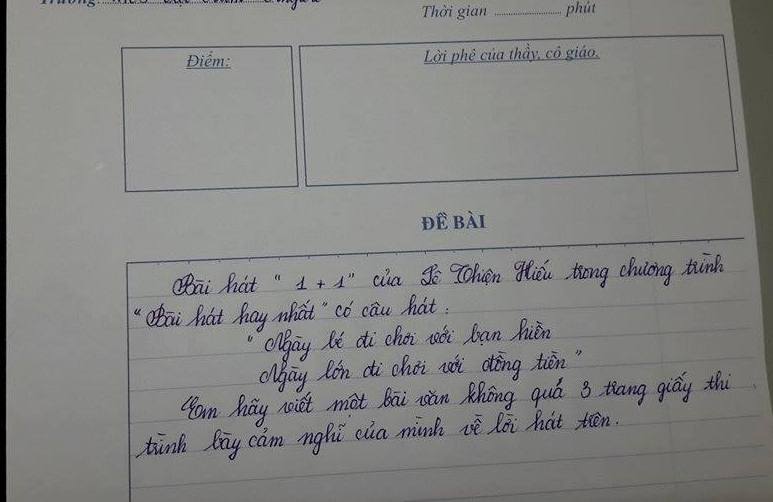 Trường:
Thời gian ........................ phút
Điểm:
Lời phê của thầy, cô giáo.
ĐỀ BÀI
Bài hát " 1 + 1" của Lê Thiện Hiếu trong chương trình
"Bài hát hay nhất" có câu hát :
" Ngày bé đi chơi với bạn hiền
Ngày lớn đi chơi với đồng tiền "
Em hãy viết một bài văn không quá 3 trang giấy thi
trình bày cảm nghĩ của mình về lời hát trên.